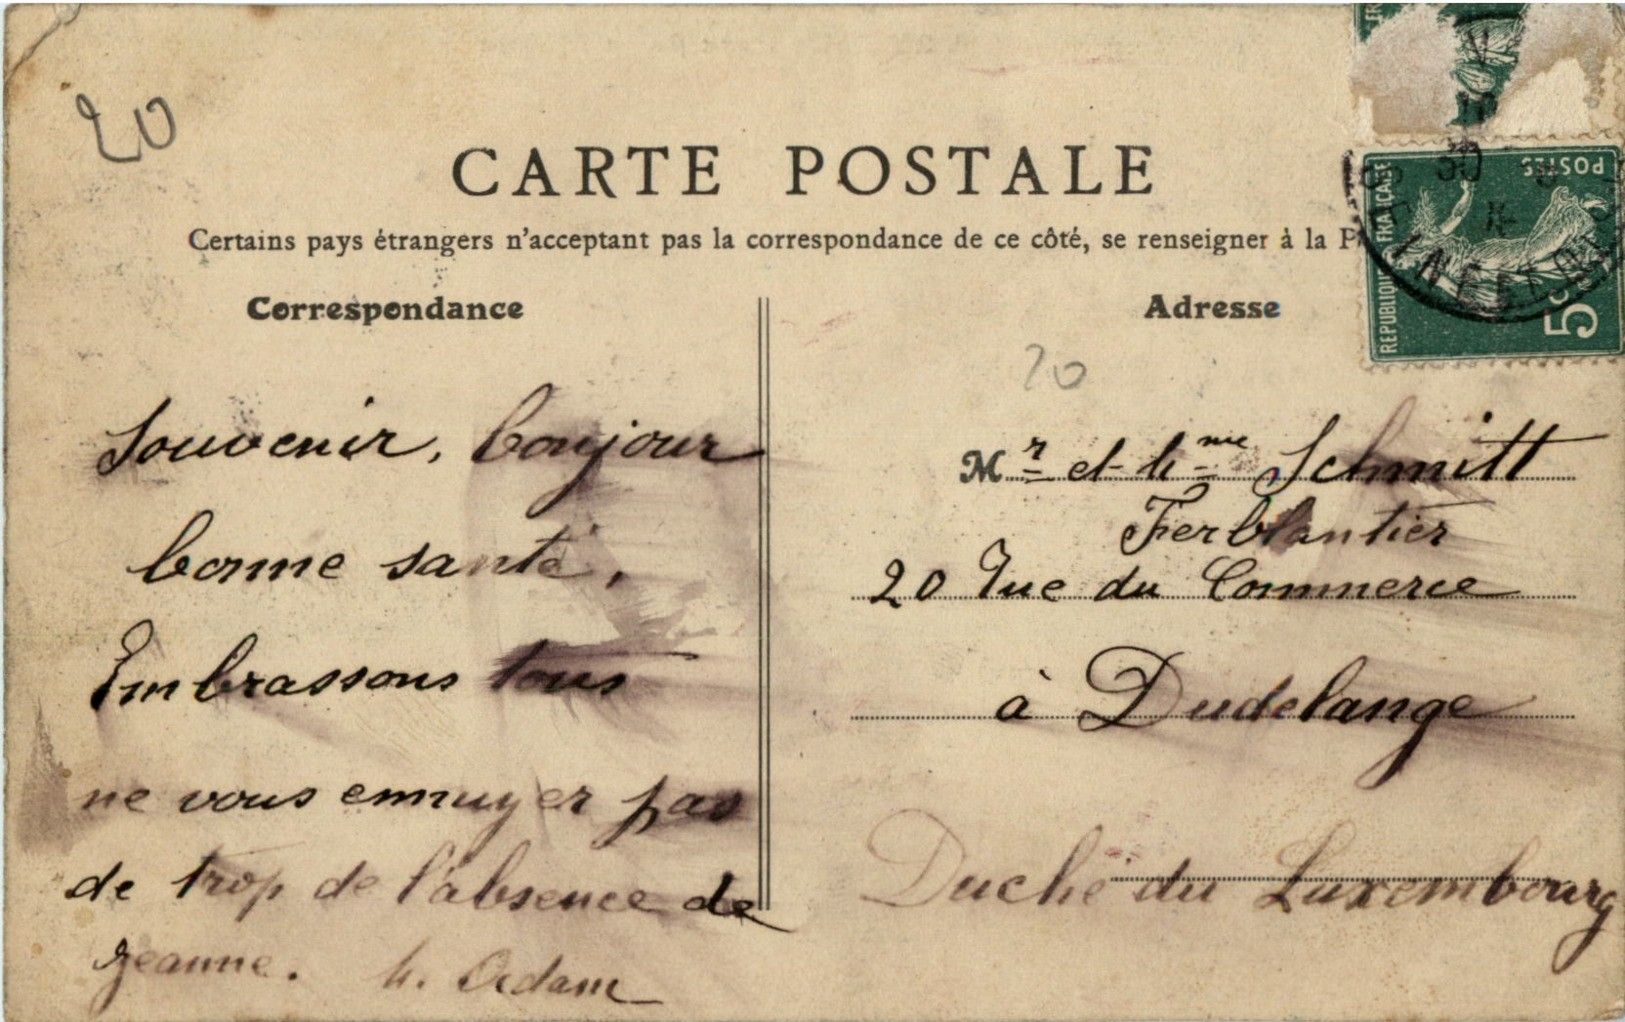 20
CARTE POSTALE
Certains pays étrangers n'acceptant pas la correspondance de ce côté, se renseigner à la P
Correspondance
Souvenir, bonjour
bonne santé,
Embrassons tous
ne vous ennuyer pas
de trop de l'absence de
Jeanne. h. Adam
Adresse
20
Mr et Mme Schmitt
Ferblantier
20 Rue du Commerce
à Dudelange
Duché du Luxembourg
REPUBLIQUE FRANÇAISE
POSTES
5c